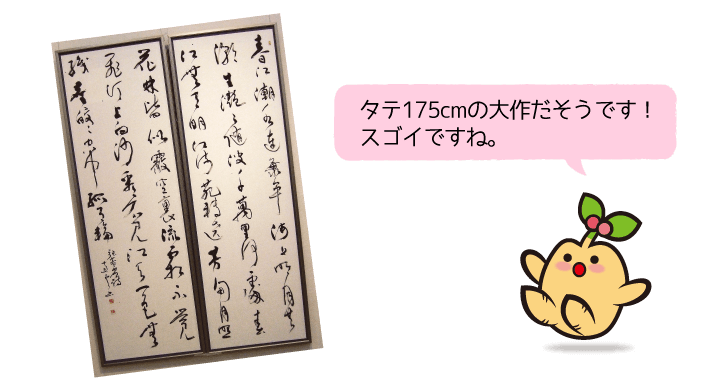 春江潮水連海平海上明月共
潮生灩々隨波千萬里何處春
江無月明江流宛轉遶芳甸月照
花林皆似霰空裏流霜不覺
飛汀上白沙看不見江天一色無
纖塵皎々空中孤月輪
タテ175cmの大作だそうです！
スゴイですね。